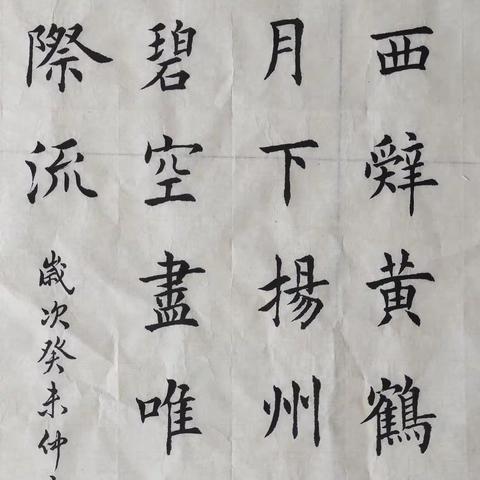 西辭黄鶴
月下揚州
碧空盡唯
際流
歲次癸未仲